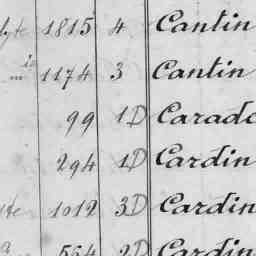 1815 4 Cantin
1174 3 Cantin
99 1D Carado
294 1D Cardin
1012 3D Cardin
554 2D Cardin